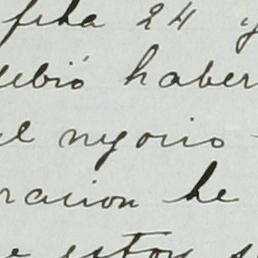 feha 24 y
debió haber
el negocio
racion he
e estoy se